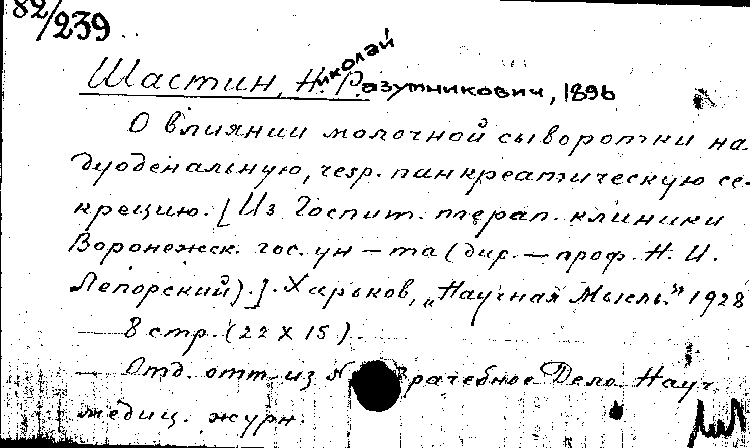 82/239
Шастин, Николай Разумникович, 1896
О влиянии молочной сыворотки на
дуоденальную, resp. панкреатическую се-
крецию. [Из Госпит. терап. клиники
Воронежск. гос. ун-та (дир. — проф. Н. И.
Лепорский).]. Харьков, „Научная Мысль." 1928
— 8 стр. (22 X 15).
— Отд. отт. из Врачебное Дело Науч.
медиц. журн.